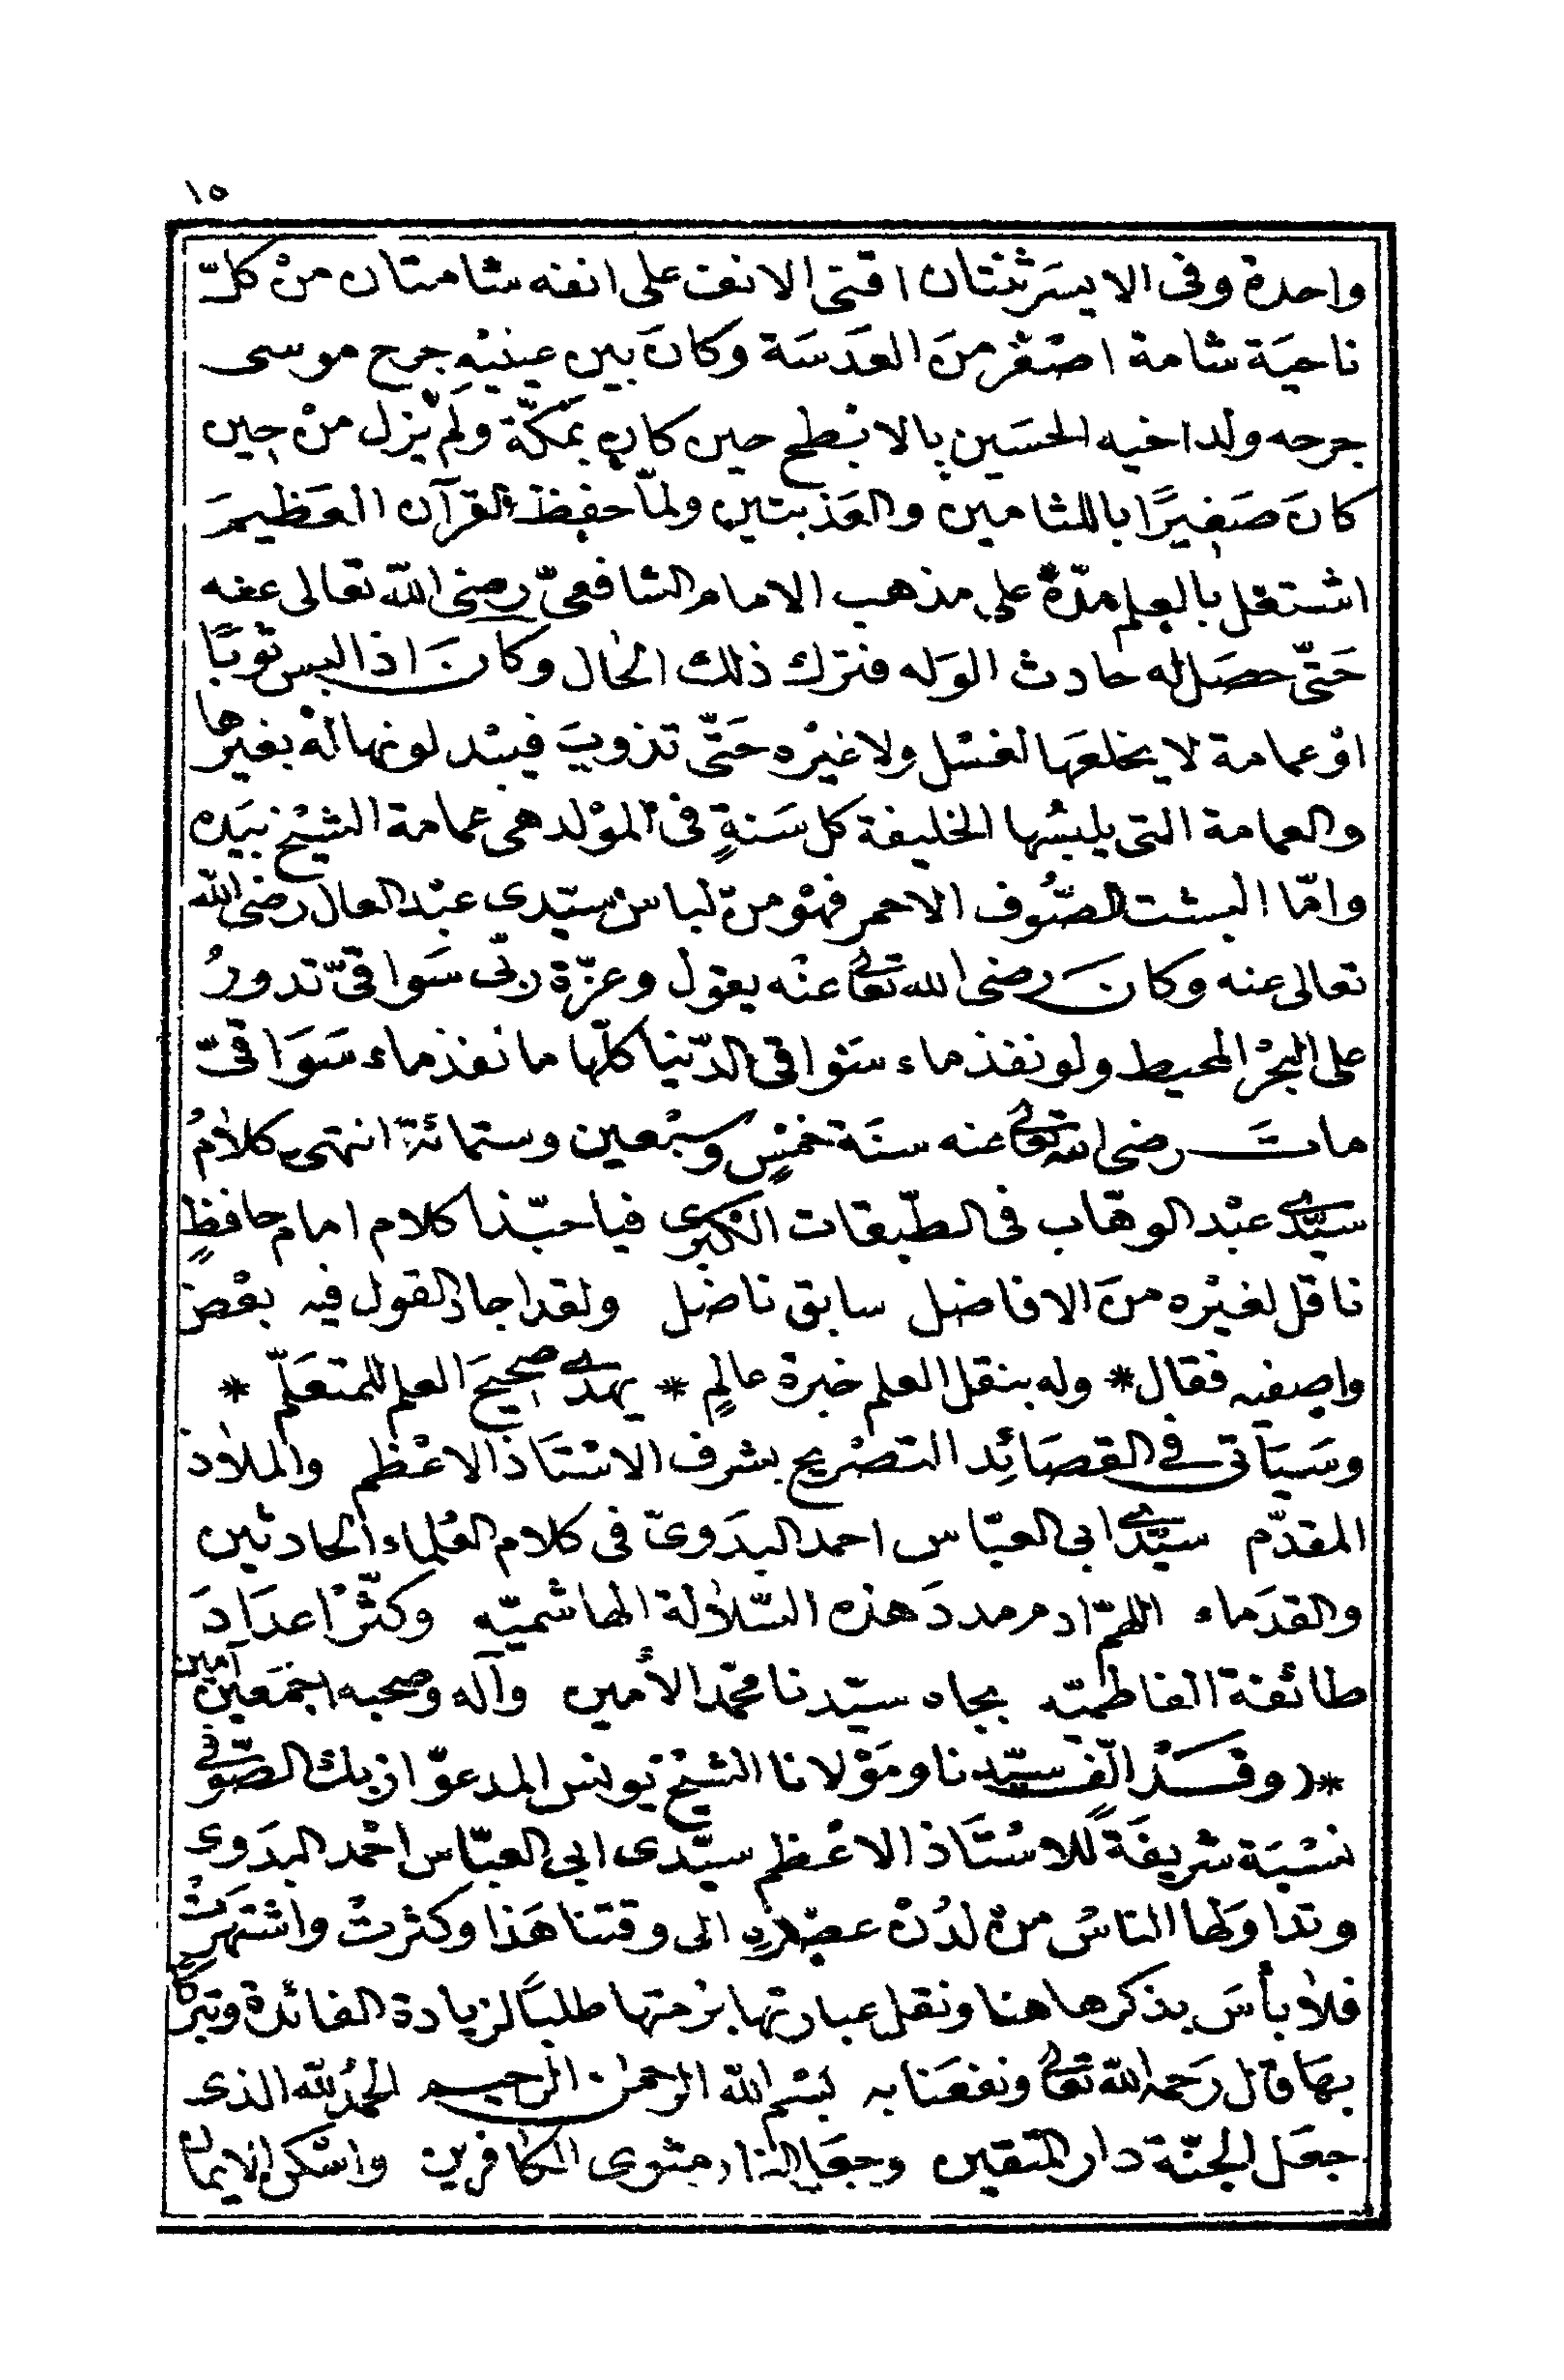 ١٥
واحدة وفى الايسَر ثنتان اقنى الانف على انفه شامتان منْ كلّ
ناحيَة شامة اصْغر منَ العَدَسَة وكانَ بين عينيْهِ جرح موسى
جرحه ولد اخيه الحسَين بالابْطح حين كان بمَكّة ولَمْ يزل منْ حِين
كانَ صَغيرًا باللثامين والعَذبتين ولمّا حفظ القرآن العَظيمَ
اشتغل بالعلم مدّةً على مذهب الامام الشافعىّ رضى الله تعالى عنه
حَتّى حصَل له حادث الوَله فترك ذلك الحال وكانَ اذا لبس ثوبًا
اوْ عمامة لا يخلعَها لغسْل ولا غيْره حَتّى تذوبَ فيبْدلونها لهْ بغيرها
والعمامة التى يلبسُها الخليفة كل سَنةٍ فى المَوْلد هى عمامة الشيْخ بيَده
وامّا البشت الصُّوف الاحمر فهْو منْ لباسْ سيّدي عبْد العال رضى الله
تعالى عنه وكانَ رضى الله تعالى عنْه يقول وعزّة ربّى سَواقىّ تدورُ
على البحْر المحيط ولو نفذ ماء سَوْاقى الدّنيا كلّها ما نفذ ماء سَوَاقىّ
ماتَ رضى الله تعالى عنه سنَة خمْسٍ وسبْعين وستمائة انتهى كلامُ
سَيّدى عبْد الوهّاب فى الطّبقات الكبْرى فيا حبّذا كلام امام حافظٍ
ناقل لغيْره منَ الافاضل سابق ناضل ولقد اجاد القول فيه بعْض
واصفيه فقال * وله بنقل العلم خبرة عالمٍ * يهدى صحيحَ العلم للمتعَلّم *
وسَيَأتى فى القصَائِد التصْريح بشرف الاسْتَاذ الاعْظم والملاذ
المقدّم سيّدى ابى العبّاس احمد البدَوىّ فى كلام العُلماء الحادثين
والقدَماء اللهمّ ادم مددَ هذه السّلالة الهاشميّه وكثّرْ اعدَادَ
طائفة الفاطميّه بجاه سيّدنا محمّد الأمين وآله وصحبه اجْمَعين آمين
*( وقَدْ الّف سيّدنا ومَوْلانا الشيْخ يونس المدعوّ ازبك الصّوفى
نسْبَة شريفَةً للاسْتَاذ الاعْظم سيّدى ابى العبّاس احْمد البدَوى
وتداوَلها الناسُ منْ لدُنْ عصْره الى وقتنا هَذا وكثرتْ واشتهَرتْ
فلا بأسَ بذكرها هنا ونقل عبارتها برُمتها طلبًا لزيادة الفائدة وتبركا
بهَا قال رَحمه الله تعالى ونفعَنا به بسْم الله الرحمٰن الرحيم الحمْدُ لله الذى
جعَل الجنّة دار المتقين وجعَل النار مثوى الكافرين واسْكن الايمان